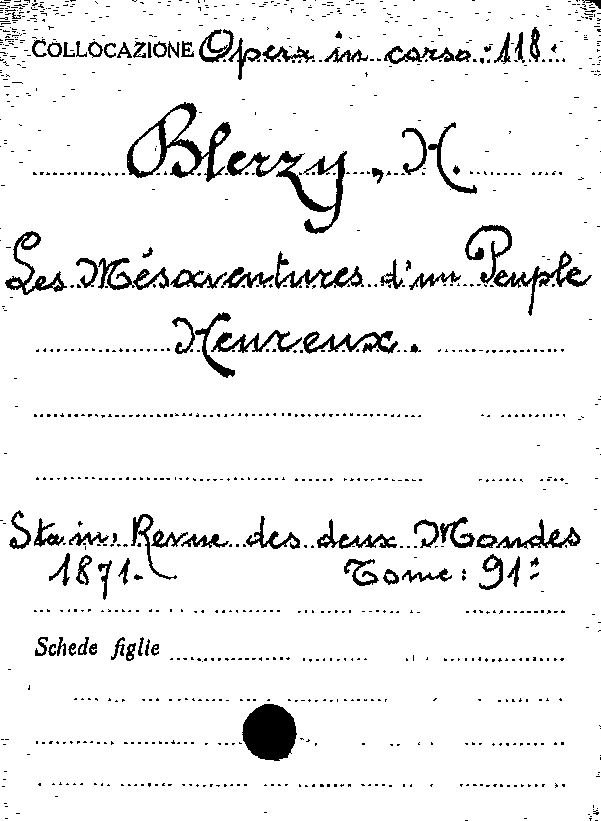 COLLOCAZIONE Opera in corso. 118.
Blerzy, H.
Les Mésaventures d'un Peuple
Heureux.
Sta in: Revue des deux Mondes
1871. Tome: 91º
Schede figlie